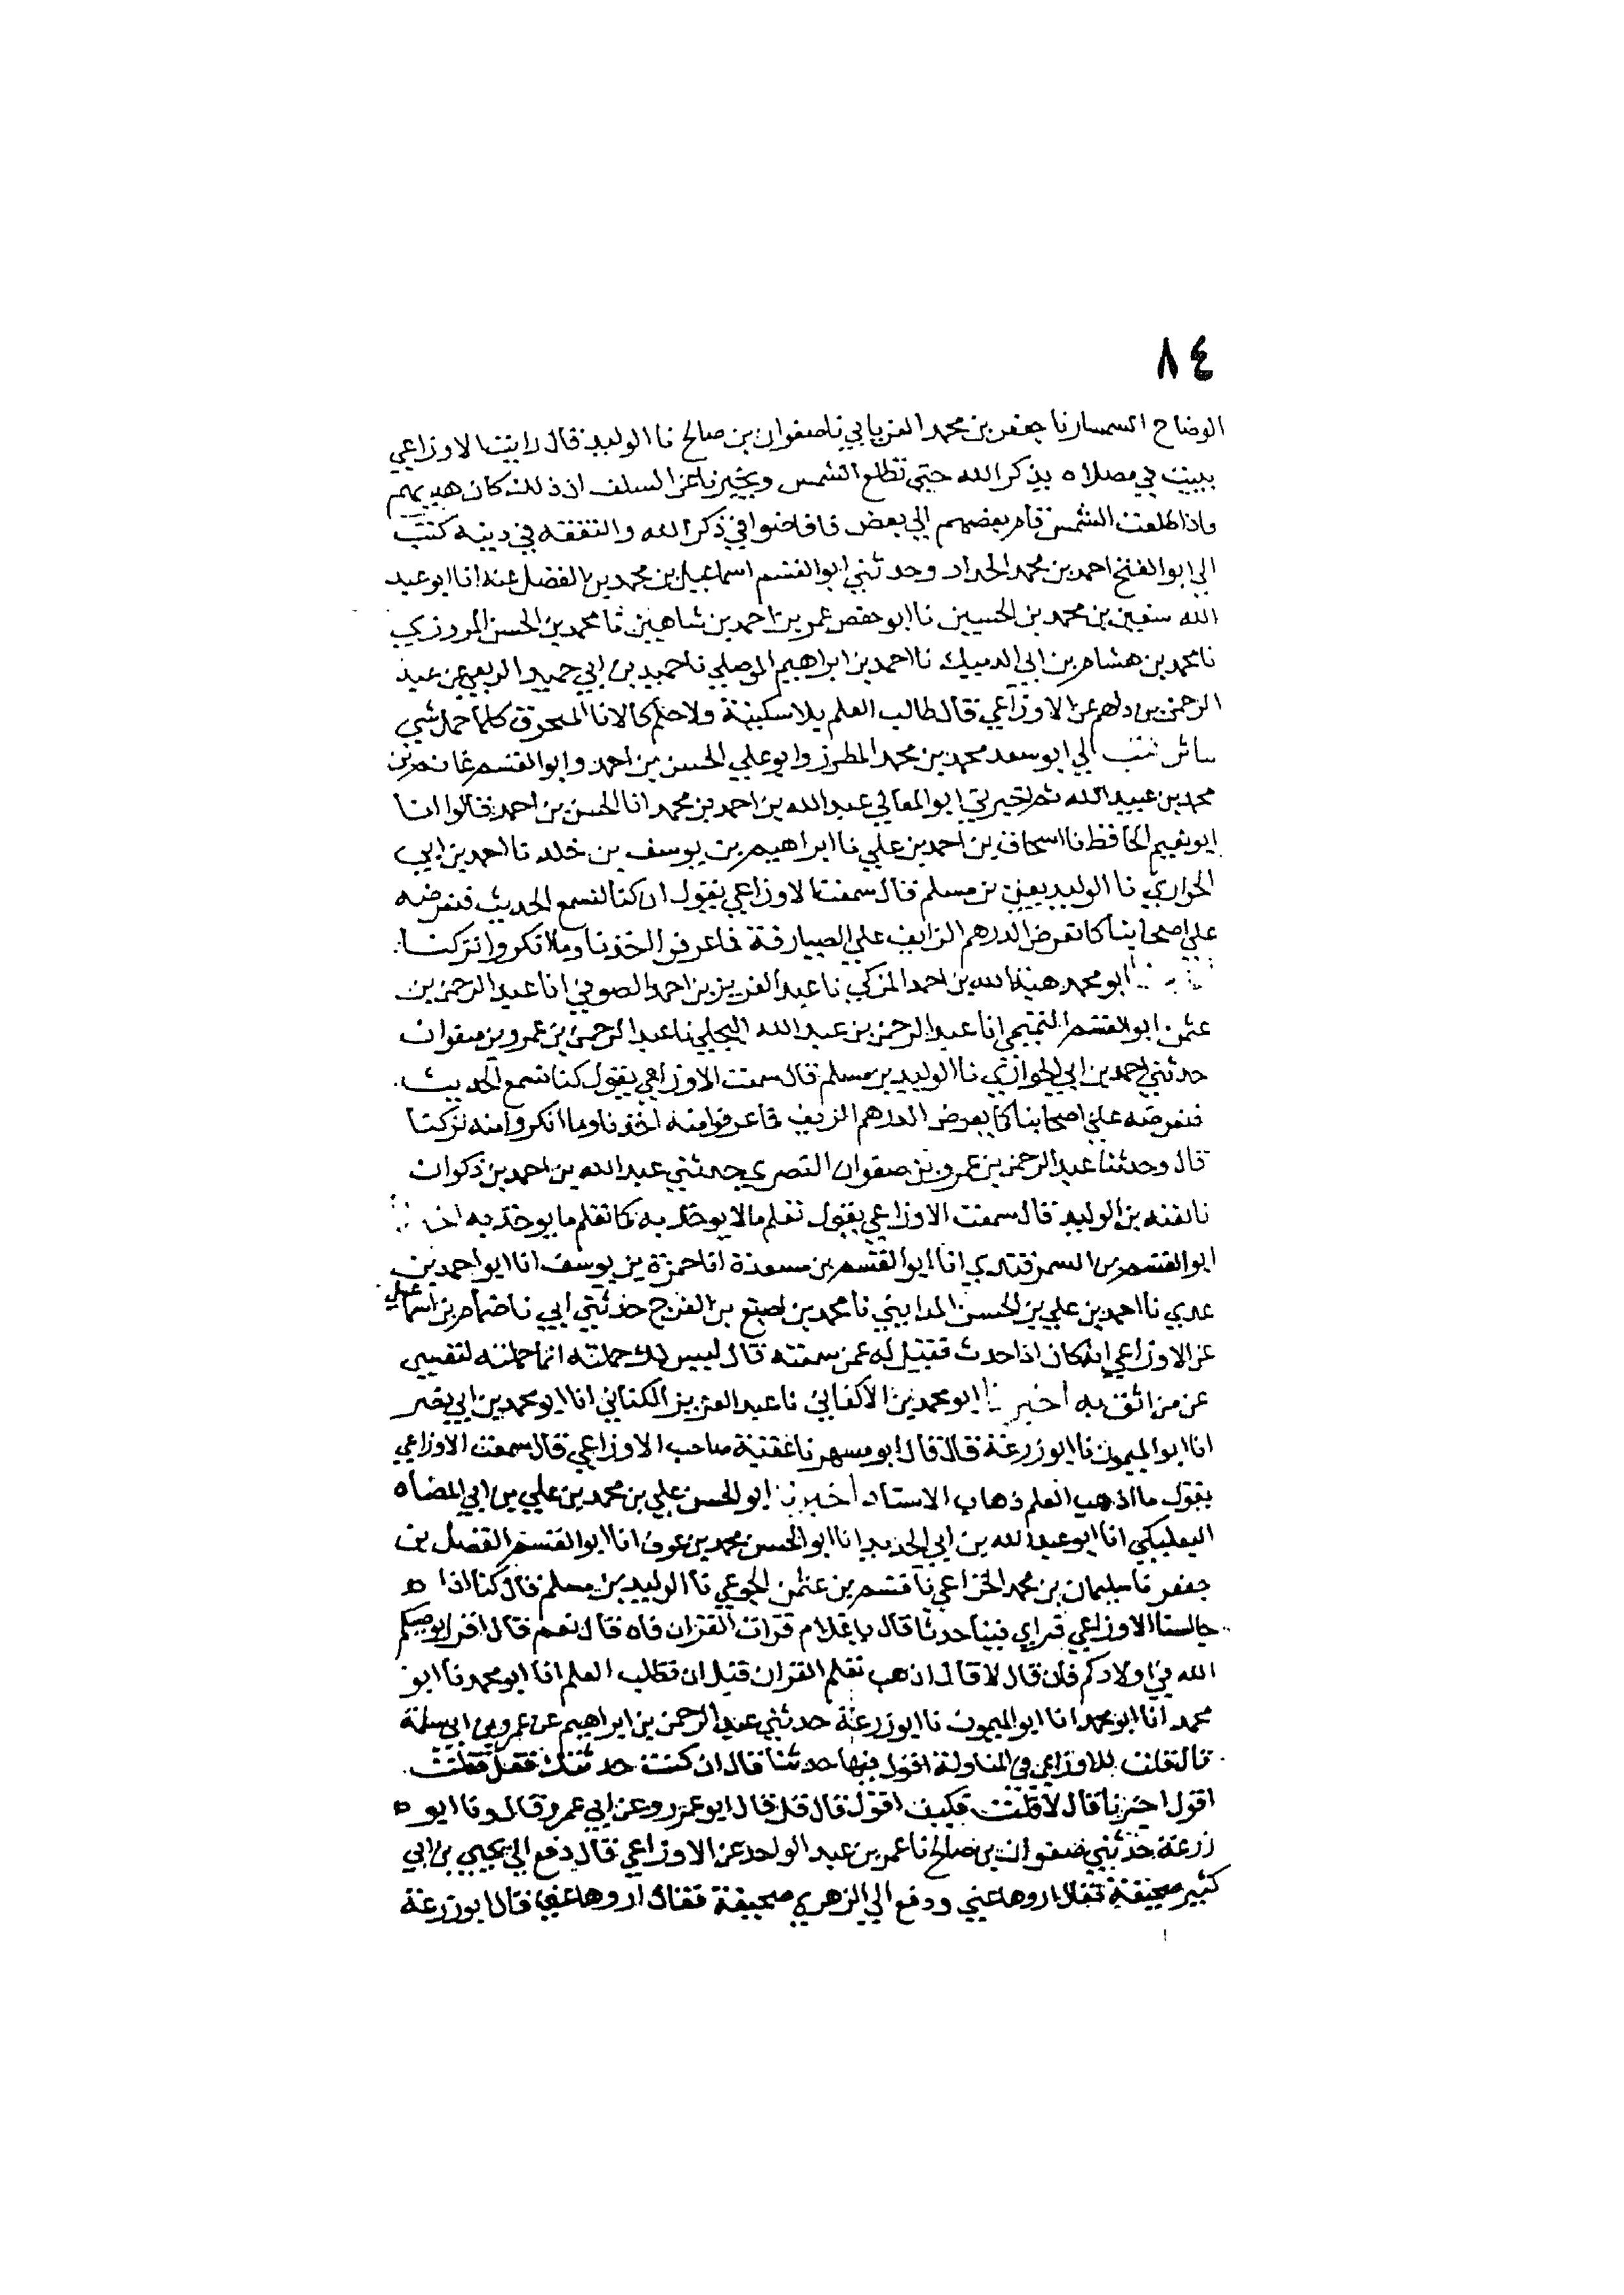 ٨٤
الوضاح السمسار نا جعفر بن محمد الفريابي نا صفوان بن صالح نا الوليد قال رايت الاوزاعي
يبيت في مصلاه يذكر الله حتى تطلع الشمس ويخبرنا عن السلف ان ذلك كان هديهم
واذا طلعت الشمس قام بعضهم الي بعض فافاضوا في ذكر الله والتفقه في دينه كتب
الي ابو الفتح احمد بن محمد الحداد وحدثني ابو القسم اسماعيل بن محمد بن الفضل عنه انا ابو عبد
الله سفين بن محمد بن الحسين نا ابو حفص عمر بن احمد بن شاهين نا محمد بن الحسن المروزي
نا محمد بن هشام بن ابي الدميك نا احمد بن ابراهيم الموصلي نا حميد بن ابي حميد الربعي عن عبد
الرحمن بن دلهم عن الاوزاعي قال طالب العلم بلا سكينة ولا حلم كالانا المنخرق كلما حمل شي
كتب الي ابو سعد محمد بن محمد المطرز وابو علي الحسن بن احمد وابو القسم غانم بن
محمد بن عبيد الله ثم اخبرني ابو المعالي عبد الله بن احمد بن محمد انا الحسن بن احمد قالوا انا
ابو نعيم الحافظ نا اسحاق بن احمد بن علي نا ابراهيم بن يوسف بن خلد نا احمد بن ابي
الحواري نا الوليد يعني بن مسلم قال سمعت الاوزاعي يقول ان كنا لنسمع الحديث فنعرضه
علي اصحابنا كما نعرض الدرهم الزايف علي الصيارفة فما عرفوا اخذنا وما انكروا تركنا
ابو محمد هبة الله بن احمد المزكي نا عبد العزيز بن احمد الصوفي انا عبد الرحمن بن
عثمن ابو القسم التميمي انا عبد الرحمن بن عبد الله البجلي نا عبد الرحمن بن عمرو بن صفوان
حدثني احمد بن ابي الحواري نا الوليد بن مسلم قال سمعت الاوزاعي يقول كنا نسمع الحديث
فنعرضه علي اصحابنا كما يعرض الدرهم الزيف فما عرفوا منه اخذنا وما انكروا منه تركنا
قال وحدثنا عبد الرحمن بن عمرو بن صفوان النصري حدثني عبد الله بن احمد بن ذكوان
نا بقية بن الوليد قال سمعت الاوزاعي يقول تعلم ما لا يوخذ به كما تعلم ما يوخذ به
ابو القسم بن السمرقندي انا ابو القسم بن مسعدة انا حمزة بن يوسف انا ابو احمد بن
عدي نا احمد بن علي بن الحسن المدايني نا محمد بن اصبغ بن الفرج حدثني ابي نا ضمام بن اسماعيل
عن الاوزاعي انه كان اذا حدث فقيل له عمن سمعته قال ليس لك حملته انما حملته لنفسي
عن من اثق به اخبرنا ابو محمد بن الاكفاني نا عبد العزيز الكتاني انا ابو محمد بن ابي نصر
انا ابو الميمون نا ابو زرعة قال قال ابو مسهر نا عقبة صاحب الاوزاعي قال سمعت الاوزاعي
يقول ما اذهب العلم ذهاب الاسناد اخبرنا ابو الحسن علي بن محمد بن علي بن ابي المضاه
البعلبكي انا ابو عبد الله بن ابي الحديد انا ابو الحسن محمد بن عوف انا ابو القسم الفضل بن
جعفر نا سليمان بن محمد الخزاعي نا قسم بن عثمن الجوعي نا الوليد بن مسلم قال كنا اذا
جالسنا الاوزاعي فراي فينا حدثا قال يا غلام قرات القران فان قال نعم قال اقرا يوصيكم
الله في اولادكم فان قال لا قال اذهب تعلم القران قبل ان تطلب العلم انا ابو محمد نا ابو
محمد انا ابو محمد انا ابو الميمون نا ابو زرعة حدثني عبد الرحمن بن ابراهيم عن عمرو بن ابي سلمة
قال قلت للاوزاعي في المناولة اقول فيها حدثنا قال ان كنت حدثتك فقل فقلت
اقول اخبرنا قال لا قلت فكيف اقول قال قل قال ابو عمرو وعن ابي عمرو قال ونا ابو
زرعة حدثني صفوان بن صالح نا عمر بن عبد الواحد عن الاوزاعي قال دفع الي يحيى بن ابي
كثير صحيفة فقال اروها عني ودفع الي الزهري صحيفة فقال اروها عني قال ابو زرعة